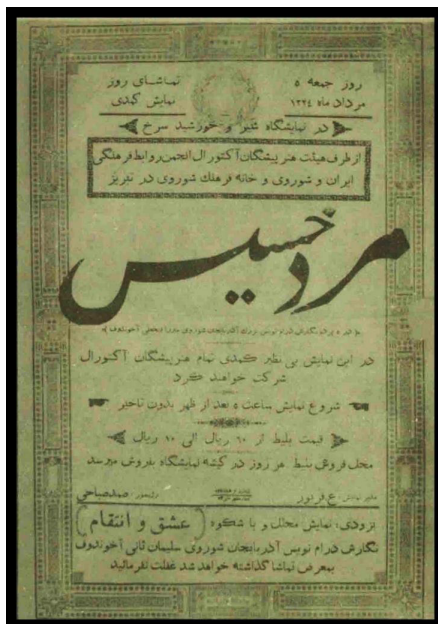 روز جمعه ٥
مرداد ماه ١٣٢٤
تماشای روز
نمایش کمدی
در نمایشگاه شیر و خورشید سرخ
از طرف هیئت هنرپیشگان آکتورال انجمن روابط فرهنگی
ایران و شوروی و خانه فرهنك شوروی در تبریز
مرد خسیس
در این نمایش بی نظیر کمدی تمام هنرپیشگان آکتورال
شرکت خواهند کرد
شروع نمایش ساعت ٥ بعد از ظهر بدون تاخیر
قیمت بلیط از ٦٠ ریال الی ١٠ ریال
محل فروش بلیط هر روز در گیشه نمایشگاه بفروش میرسد
مدیر نمایش: ع فرنور
رژیسور: صمد صباحی
بزودی: نمایش مجلل و با شکوه (عشق و انتقام)
نگارش درام نویس آذربایجان شوروی سلیمان ثانی آخوندوف
بمعرض تماشا گذاشته خواهد شد غفلت نفرمائید